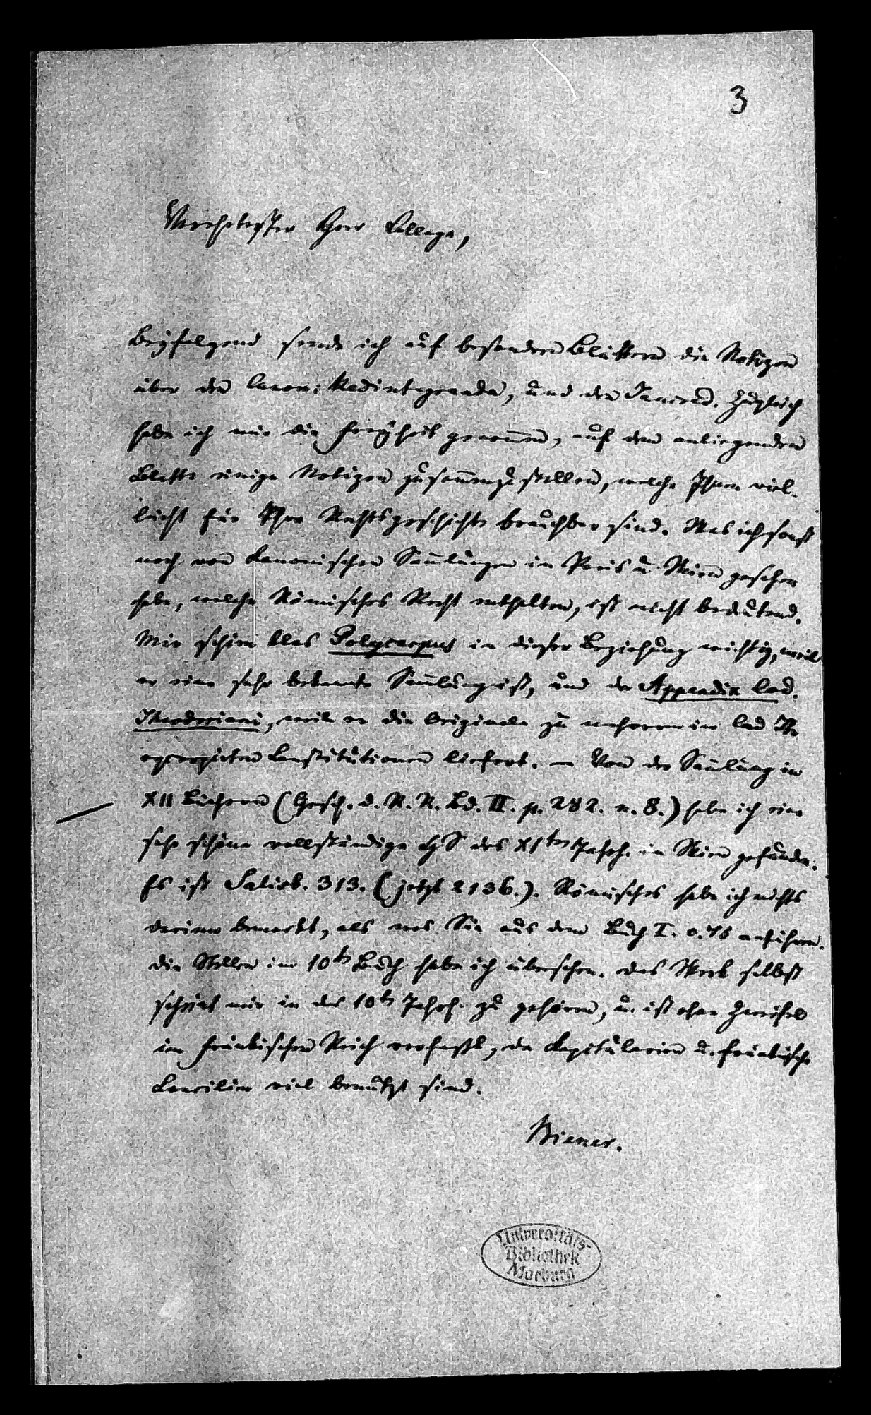 3
Verehrtester Herr College,
Beyfolgend sende ich auf besondern Blättern die Notizen
über den Canon: Redintegranda, und den Tancred. Zugleich
habe ich mir die Freyheit genom̄en, auf dem anliegenden
Blatte einige Notizen zusam̄enzustellen, welche Ihnen viel-
leicht für Ihre Rechtsgeschichte brauchbar sind. Was ich sonst
noch von kanonischen Sam̄lungen in Paris u. Wien gesehen
habe, welche Römisches Recht enthalten, ist nicht bedeutend.
Mir schien blos Polycarpus in dieser Beziehung wichtig, weil
er eine sehr bekannte Sam̄lung ist, und der Appendix Cod.
Theodosiani, weil er die Originale zu mehreren im Cod. Th.
excerpirten Constitutionen liefert. – Von der Sam̄lung in
XII Büchern (Gesch. d. R. R. Bd. II. p. 282. n. 8.) habe ich eine
sehr schöne vollständige HS des XIten Jahrh. in Wien gefunden.
Es ist Salisb. 313. (jetzt 2136.). Römisches habe ich nichts
darinn bemerkt, als was Sie aus dem Buch I. c. 76 anführen.
Die Stellen im 10ten Buch habe ich übersehen. Das Werk selbst
scheint mir in das 10te Jahrh. zu gehören, u. ist ohne Zweifel
im fränkischen Reich verfaßt, da Kapitularien u. fränkische
Concilien viel benutzt sind.
Biener.
Universitäts-
Bibliothek
Marburg